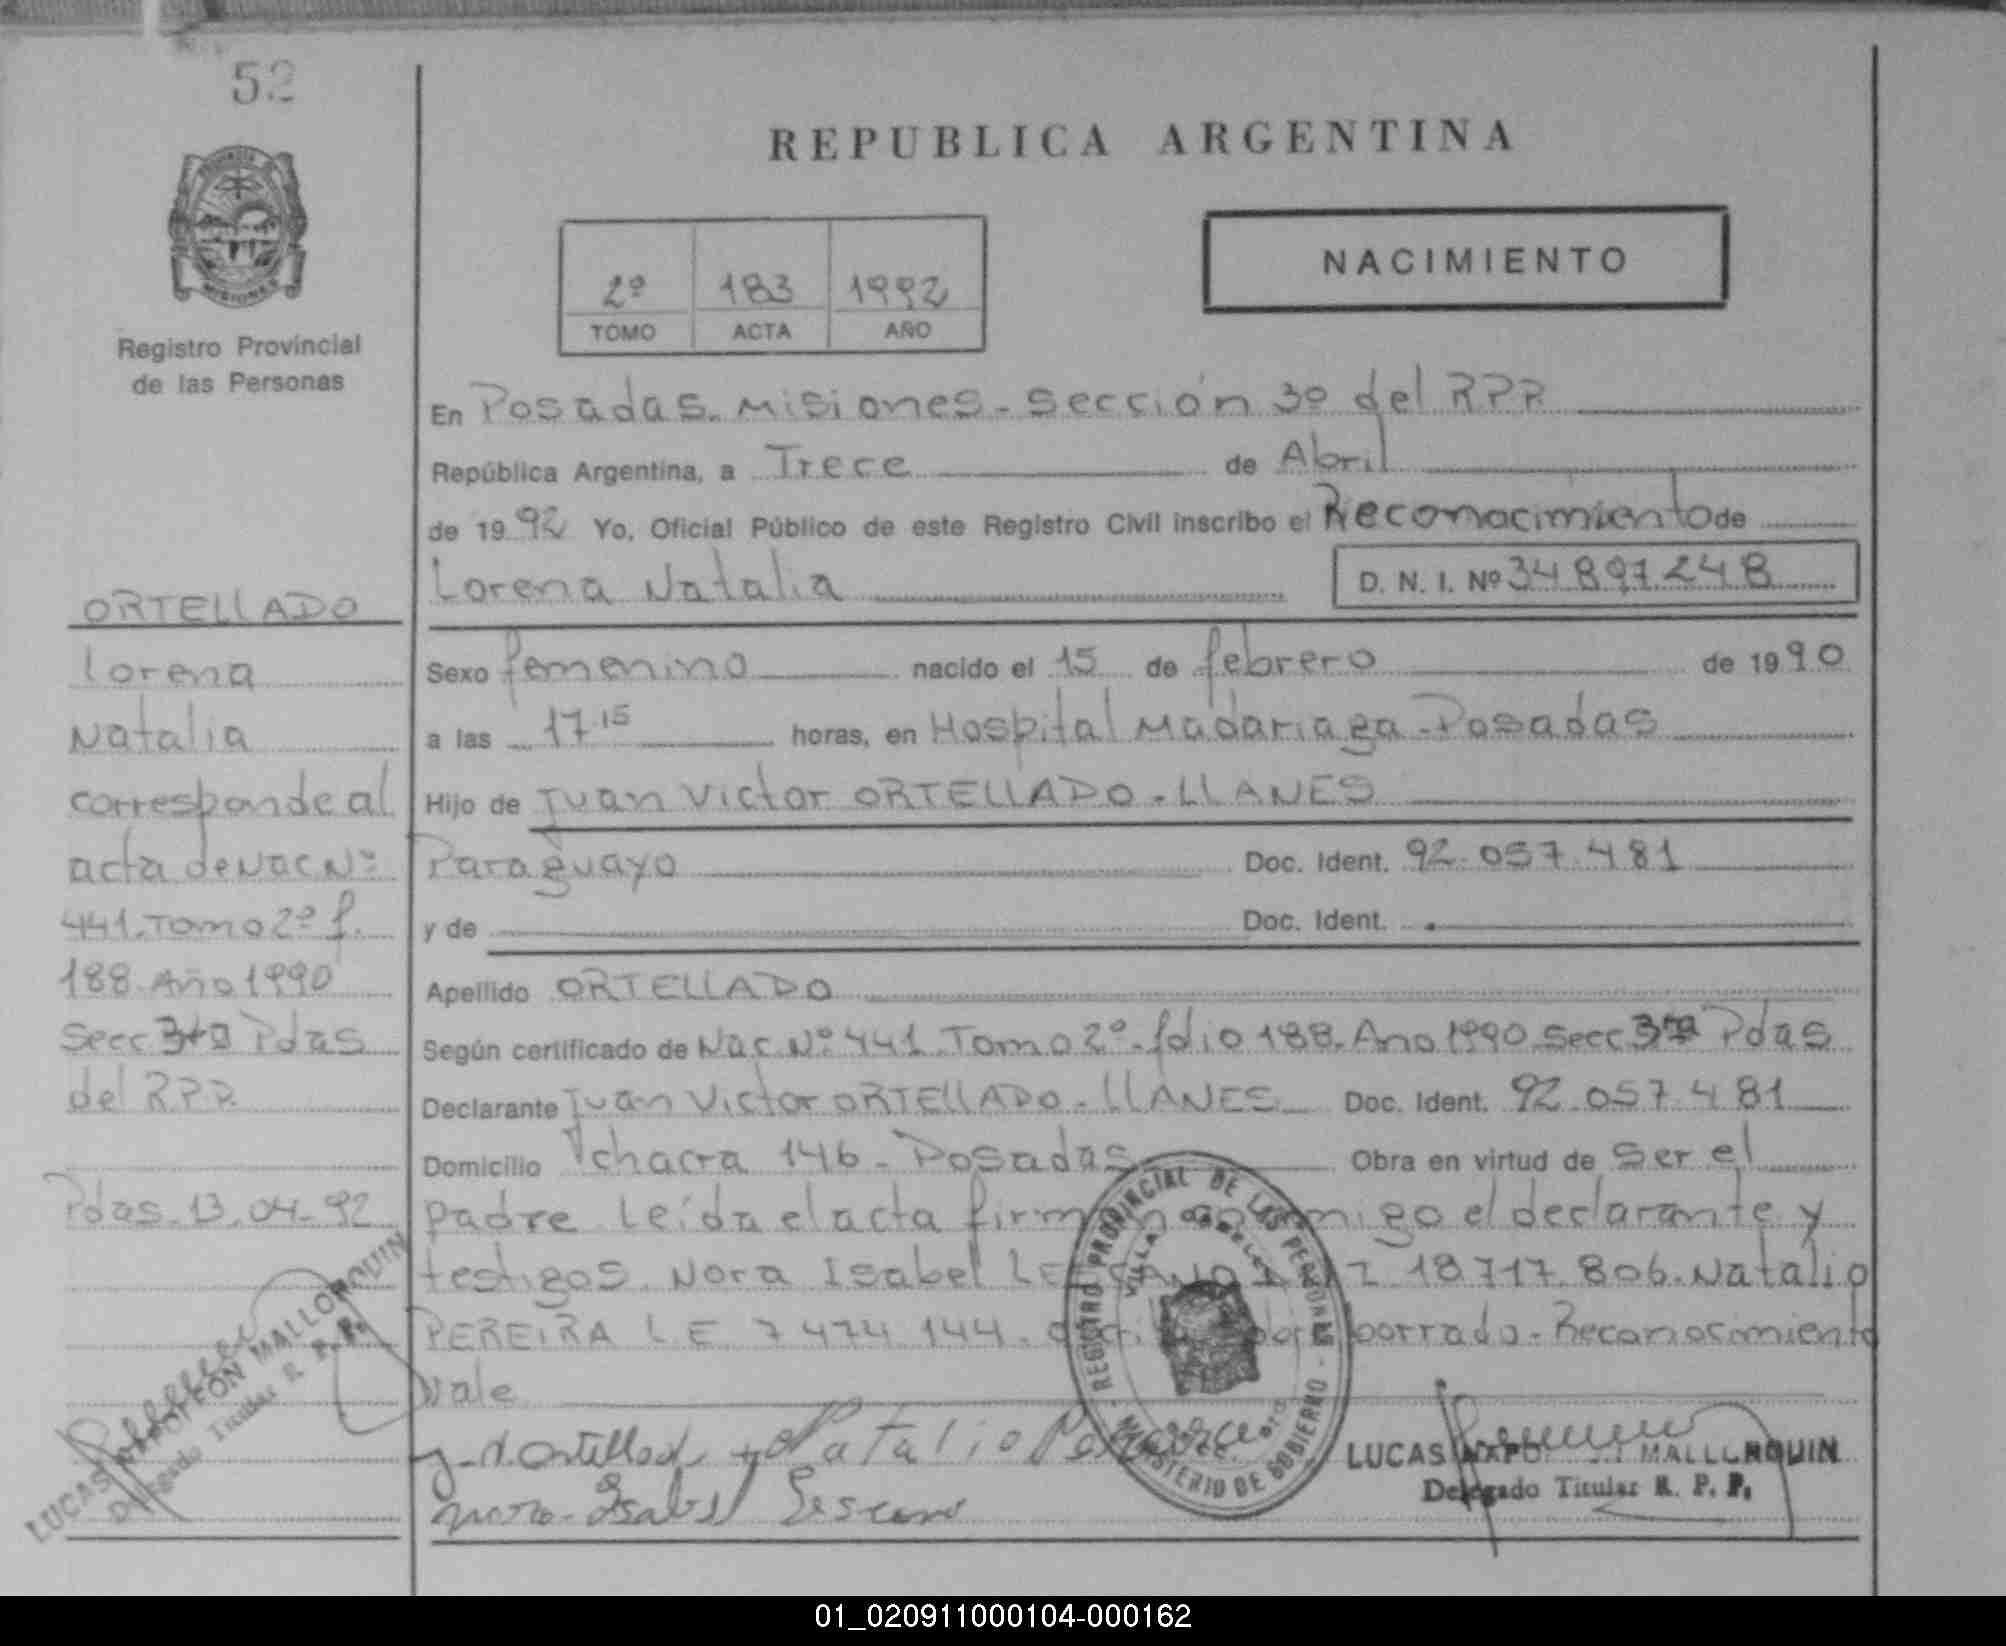 52
PROVINCIA DE
MISIONES
Registro Provincial
de las Personas
REPUBLICA ARGENTINA
NACIMIENTO
2º 183 1992
TOMO ACTA AÑO
En Posadas. Misiones - sección 3º del RPP
República Argentina, a Trece de Abril
de 1992 Yo, Oficial Público de este Registro Civil inscribo el Reconocimiento de
Lorena Natalia D. N. I. Nº 34 897 248
Sexo femenino nacido el 15 de febrero de 1990
a las 17 15 horas, en Hospital Madariaga - Posadas
Hijo de Juan Victor ORTELLADO - LLANES
Paraguayo Doc. Ident. 92.057.481
y de Doc. Ident.
Apellido ORTELLADO
Según certificado de Nac Nº 441. Tomo 2º folio 188. Año 1990 Secc 3ra Pdas
Declarante Juan Victor ORTELLADO - LLANES Doc. Ident. 92.057.481
Domicilio chacra 146 - Posadas Obra en virtud de ser el
padre Leída el acta firman conmigo el declarante y
testigos. Nora Isabel 18717.806. Natalio
PEREIRA L E 7 474 144. borrado - Reconocimiento
vale
ORTELLADO
Lorena
Natalia
corresponde al
acta de Nac Nº
441. Tomo 2º f.
188. Año 1990
Secc 3ra Pdas
del RPP.
Pdas. 13.04-92
LUCAS NAPOLEON MALLORQUIN
Delegado Titular R. P. P.
REGISTRO PROVINCIAL DE LAS PERSONAS
MINISTERIO DE GOBIERNO
J. V. Ortellado Natalio
Nora Isabel Lescano
LUCAS NAPO MALLORQUIN
Delegado Titular R. P. P.
01_020911000104-000162